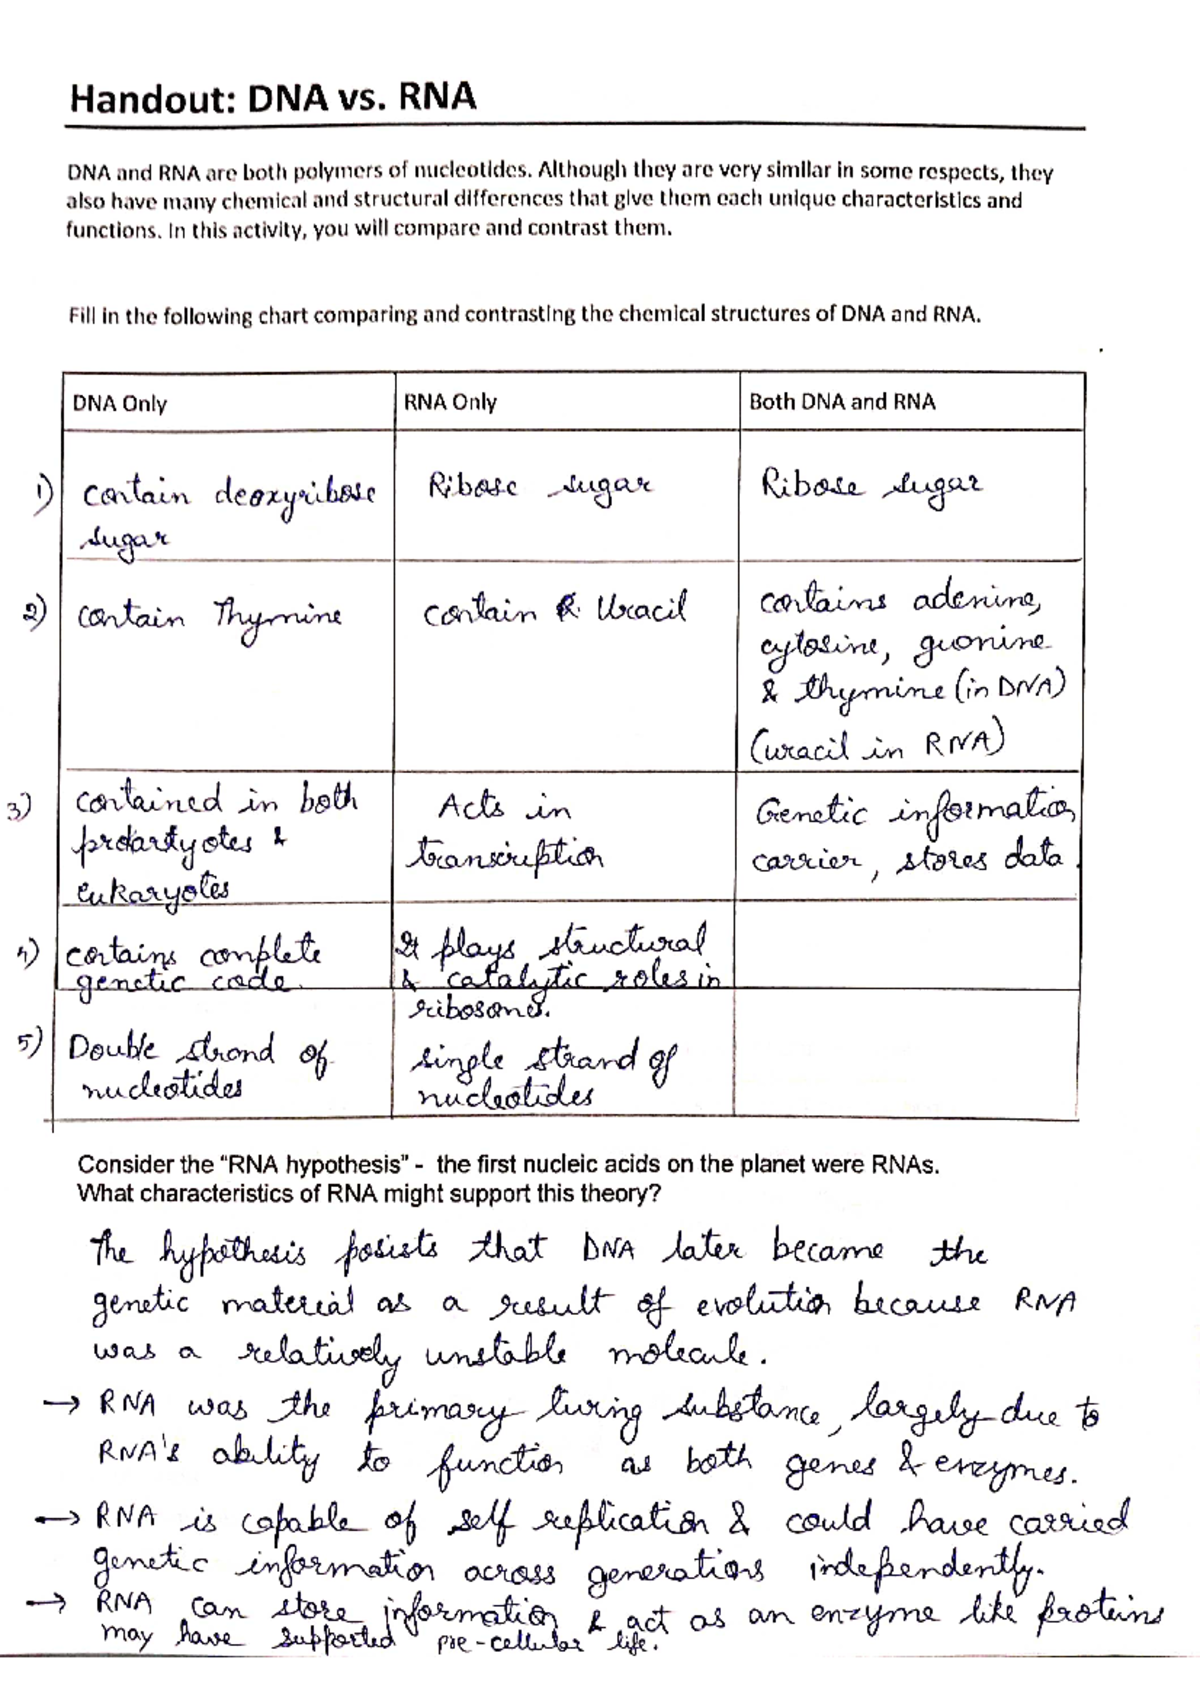 Handout: DNA vs. RNA
DNA and RNA are both polymers of nucleotides. Although they are very similar in some respects, they
also have many chemical and structural differences that give them each unique characteristics and
functions. In this activity, you will compare and contrast them.
Fill in the following chart comparing and contrasting the chemical structures of DNA and RNA.
DNA Only
RNA Only
Both DNA and RNA
1) contain deoxyribose
sugar
Ribose sugar
Ribose sugar
2) contain Thymine
contain R. Uracil
contains adenine,
cytosine, guonine
& thymine (in DNA)
(uracil in RNA)
3) contained in both
prokaryotes &
eukaryotes
Acts in
transcription
Genetic information
carrier, stores data.
4) contains complete
genetic code.
It plays structural
& catalytic roles in
ribosomes.
5) Double strand of
nucleotides
single strand of
nucleotides
Consider the “RNA hypothesis” - the first nucleic acids on the planet were RNAs.
What characteristics of RNA might support this theory?
The hypothesis posists that DNA later became the
genetic material as a result of evolution because RNA
was a relatively unstable molecule.
→ RNA was the primary living substance, largely due to
RNA's ability to function as both genes & enzymes.
→ RNA is capable of self replication & could have carried
genetic information across generations independently.
→ RNA can store information & act as an enzyme like proteins
may have supported pre-cellular life.